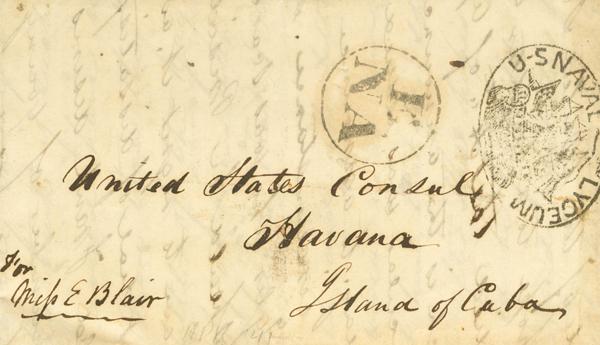 NA
U·S NAVAL LYCEUM
United States Consul
Havana
Island of Cuba
For
Miss E Blair